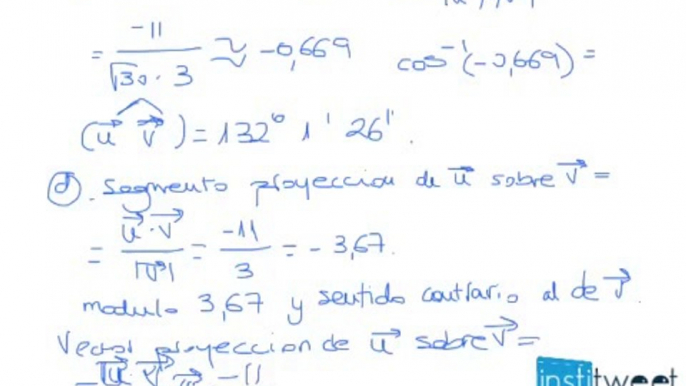 = -11 / √30 · 3 ≈ -0,669 cos⁻¹(-0,669) =
(u⃗ v⃗) = 132° 1' 26''.
d). Segmento proyeccion de u⃗ sobre v⃗ =
= u⃗ · v⃗ / |v⃗| = -11 / 3 = -3,67.
modulo 3,67 y sentido contrario al de v⃗.
Vector proyeccion de u⃗ sobre v⃗ =
= u⃗ · v⃗ -11
institweet